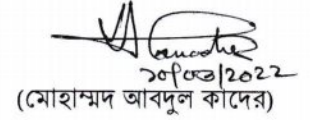 ২০/০৩/2022
(মোহাম্মদ আবদুল কাদের)